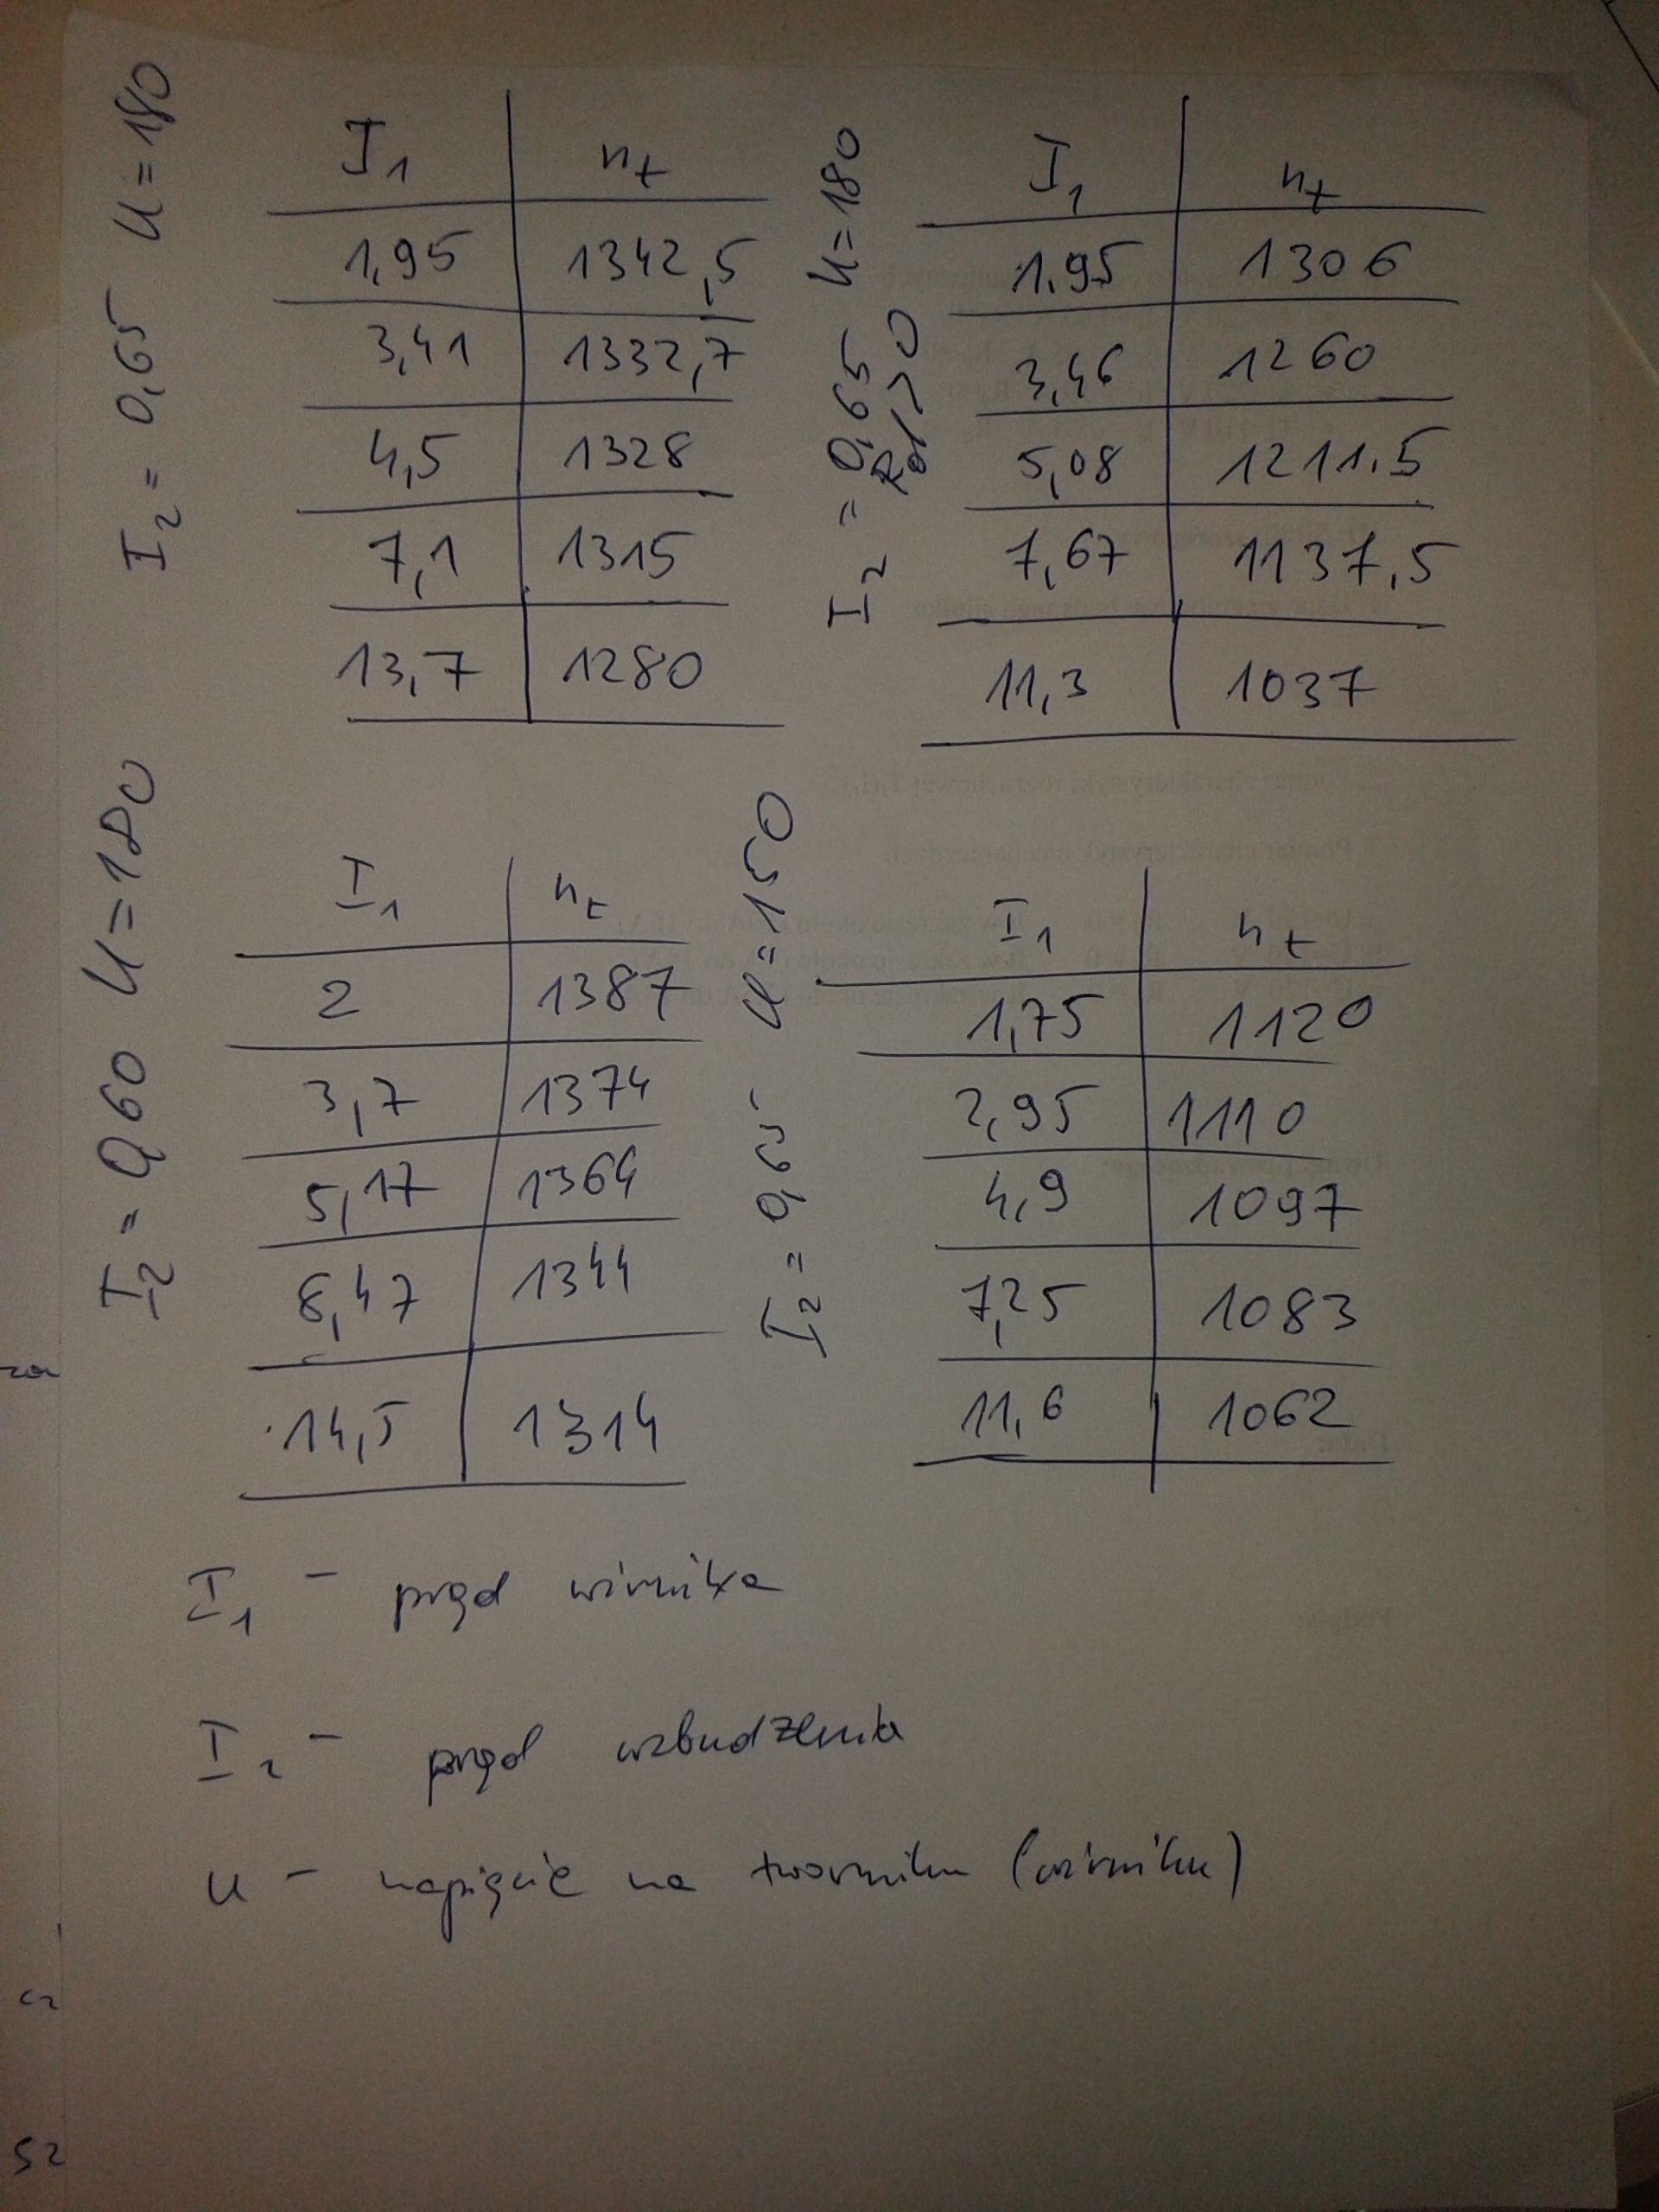 I2 = 0,65 U = 180
I1 nt
1,95 1342,5
3,41 1332,7
4,5 1328
7,1 1315
13,7 1280
I2 = 0,65 U = 180
Rd > 0
I1 nt
1,95 1306
3,46 1260
5,08 1211,5
7,67 1137,5
11,3 1037
I2 = 0,60 U = 180
I1 nt
2 1387
3,7 1374
5,17 1364
8,47 1344
14,5 1314
I2 = 0,65 U = 150
I1 nt
1,75 1120
2,95 1110
4,9 1097
7,25 1083
11,6 1062
I1 – prąd wirnika
I2 – prąd wzbudzenia
U – napięcie na tworniku (wirniku)
52